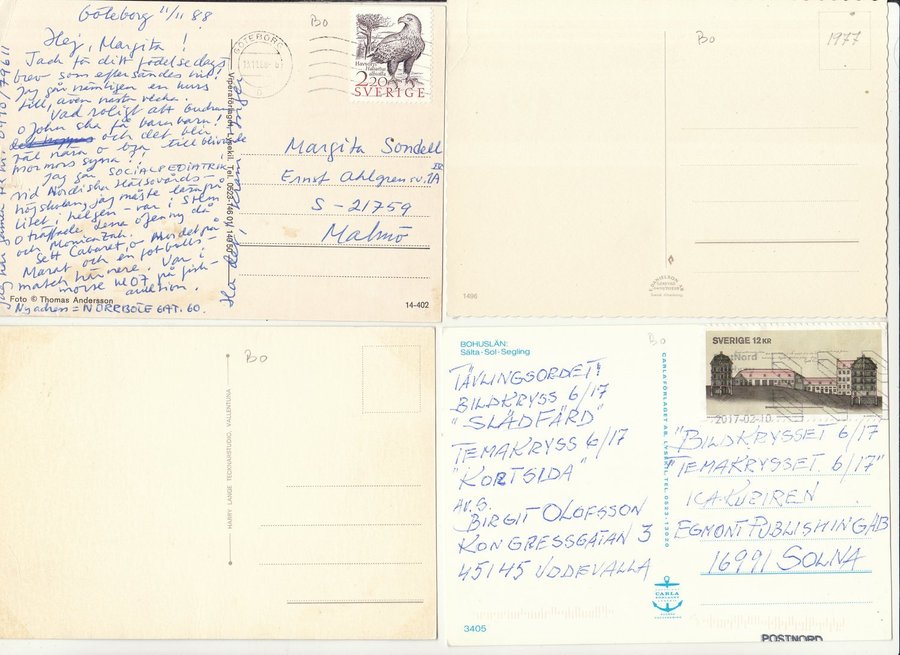 Göteborg 11/11 88
Hej, Margita!
Tack för ditt födelsedags
brev som eftersändes hit!
Jag går nämligen en kurs
till, även nästa vecka.
Vad roligt att Gudrun
o John ska få barnbarn!
och det blir
väl nära o bra
mormors syna!!
Jag går SOCIALPEDIATRIK
vid Nordiska Hälsovårds-
högskolan, jag måste
litet i helgen - var i Sthlm
o träffade Lena o Jenny då
och Monica
Sett Cabaret, o Mordet på
Marat och en fotbolls-
match här nere. Var i
morse kl 07 på fisk-
auktion.
Ny adress = NORRBÖLE GAT. 60.
Foto © Thomas Andersson
Ha det! Kram
Viperaförlaget Lysekil. Tel. 0523-146 01, 149 50
Bo
GÖTEBORG
Havsörn
Haliaeetus albicilla
2.20
SVERIGE
Margita Sondell
Ernst Ahlgrens v. 1A
S-21759
Malmö
14-402
Bo
1977
1496
Bo
HARRY LANGE TECKNARSTUDIO, VALLENTUNA
BOHUSLÄN:
Sälta-Sol-Segling
Bo
TÄVLINGSORDET!
BILDKRYSS 6/17
"SLÄDFÄRD"
TEMAKRYSS 6/17
"KORTSIDA"
AV. S.
BIRGIT OLOFSSON
KONGRESSGATAN 3
45145 UDDEVALLA
CARLAFÖRLAGET AB, LYSEKIL, TEL. 0523-13020
CARLA
3405
SVERIGE 12 KR
tNord
2017-02-10
"BILDKRYSSET 6/17
"TEMAKRYSSET. 6/17"
ICA-KURIREN
EGMONT PUBLISHING AB
16991 SOLNA
POSTNORD